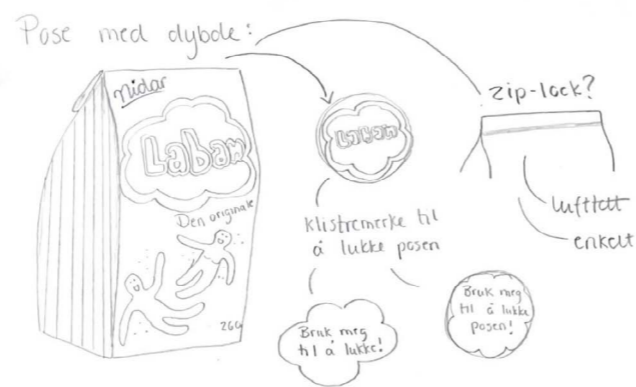 Pose med dybde:
nidar
Laban
Den originale
260
Laban
klistremerke til
å lukke posen
Bruk meg
til å lukke!
Bruk meg
til å lukke
posen!
zip-lock?
lufttett
enkelt